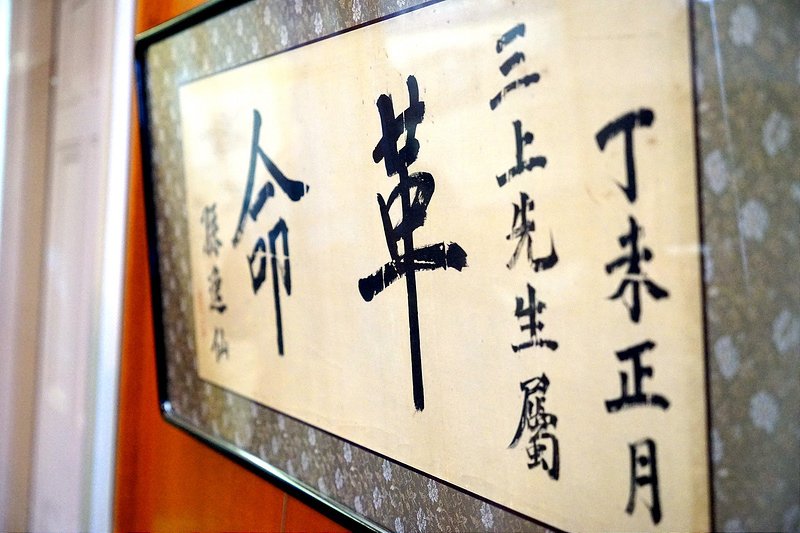 丁未正月
三上先生屬
革命
孫逸仙